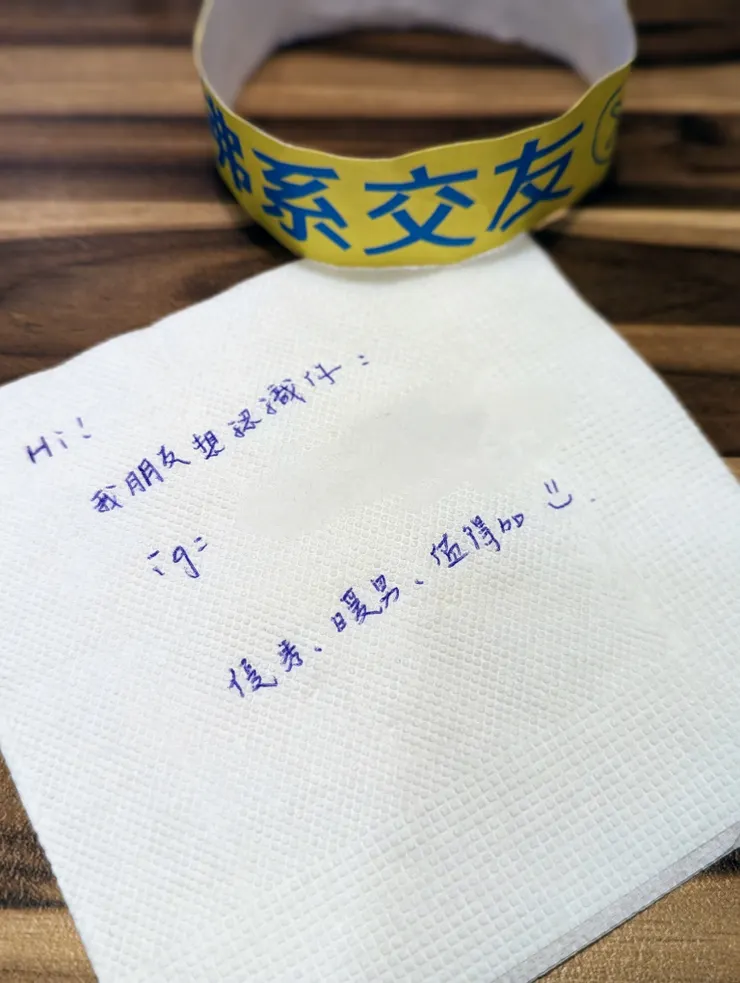 佛系交友
Hi!
我朋友想認識你:
ig:
優秀、暖男、值得加